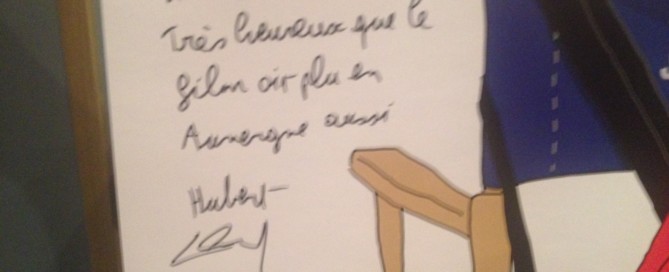 Très heureux que le
film ait plu en
Auvergne aussi
Hubert